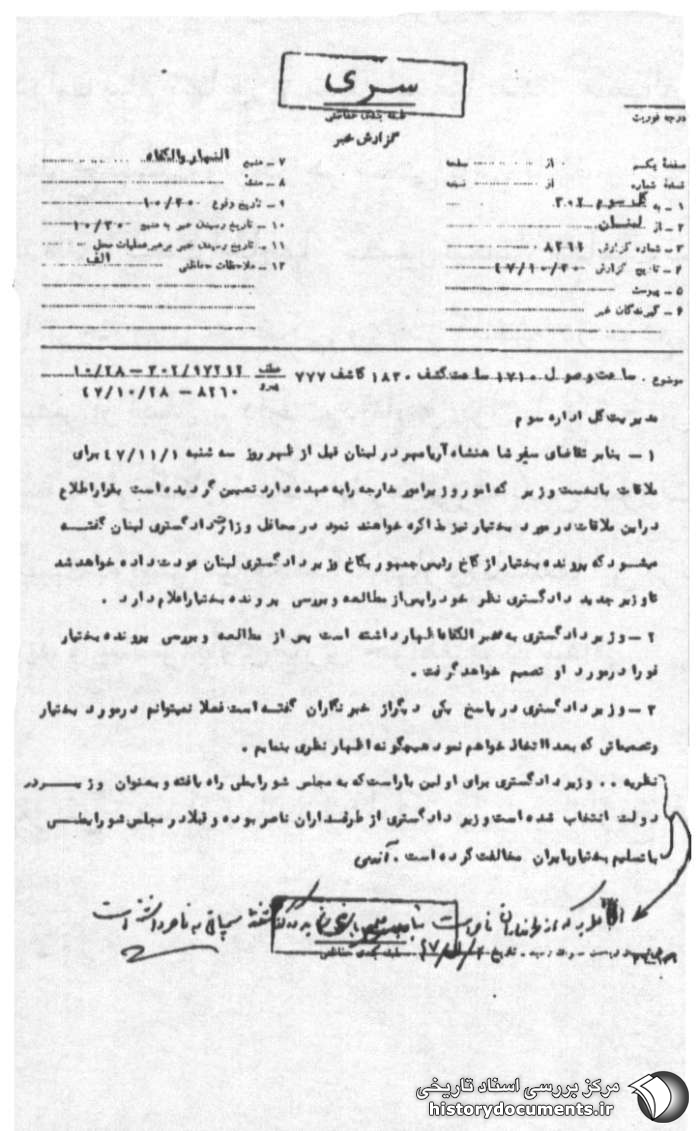 سری
طبقه بندی حفاظتی
گزارش خبر
درجه فوریت
صفحهٔ یکم از صفحه
نسخهٔ شماره از نسخه
۱ – به کل سوم ۳۰۲
۲ – از لبنان
۳ – شماره گزارش ۸۲۶۶
۴ – تاریخ گزارش ۴۷/۱۰/۳۰
۵ – پیوست
۶ – گیرندگان خبر
۷ – منبع النهار والکفاه
۸ – منشاء
۹ – تاریخ وقوع ۱۰/۳۰
۱۰ – تاریخ رسیدن خبر به منبع ۱۰/۳۰
۱۱ – تاریخ رسیدن خبر برهبر عملیات محل
۱۲ – ملاحظات حفاظتی الف
موضوع . ساعت وصول ۱۷۱۰ ساعت کشف ۱۸۳۰ کاشف ۷۷۷ عطف ۳۰۲/۹۷۲۶۲ – ۱۰/۲۸
پیرو ۸۲۶۰ – ۴۷/۱۰/۲۸
مدیریت کل اداره سوم
۱ – بنابر تقاضای سفیر شاهنشاه آریامهر در لبنان قبل از ظهر روز سه شنبه ۴۷/۱۱/۱ برای
ملاقات بانخست وزیر که امور وزیر امور خارجه رابه عهده دارد تعیین گردیده است بقرار اطلاع
دراین ملاقات در مورد بختیار نیز مذاکره خواهند نمود در محافل وزارت دادگستری لبنان گفتـــه
میشود که پرونده بختیار از کاخ رئیس جمهور بکاخ وزیر دادگستری لبنان عودت داده خواهد شد
تا وزیر جدید دادگستری نظر خود را پس از مطالعه و بررسی پرونده بختیار اعلام دارد .
۲ – وزیر دادگستری به مدیر الکفاح اظهار داشته است پس از مطالعه و بررسی پرونده بختیار
فورا در مورد او تصمیم خواهد گرفت .
۳ – وزیر دادگستری در پاسخ یکی دیگر از خبرنگاران گفته است فعلا نمیتوانم در مورد بختیار
وتصمیماتی که بعدا اتخاذ خواهم نمود هیچگونه اظهار نظری بنمایم .
نظریه . . وزیر دادگستری برای اولین بار است که به مجلس شورا بطی راه یافته و بعنوان وزیـــر در
دولت انتخاب شده است وزیر دادگستری از طرفداران ناصر بوده و قبلا در مجلس شورا بطـــی
با تسلیم بختیار بایران مخالفت کرده است . آتسی
از طرفداران ناصر است
سری
طبقه بندی حفاظتی
مرکز بررسی اسناد تاریخی
historydocuments.ir